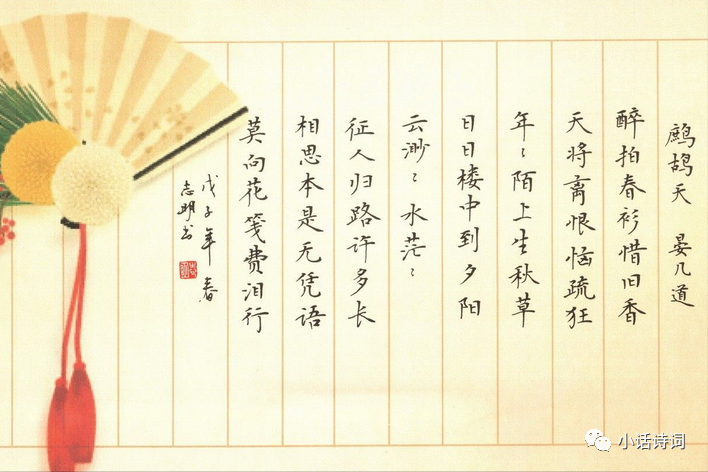 鹧鸪天 晏几道
醉拍春衫惜旧香
天将离恨恼疏狂
年〻陌上生秋草
日日楼中到夕阳
云渺〻水茫〻
征人归路许多长
相思本是无凭语
莫向花笺费泪行
戊子年春
志明书
小话诗词